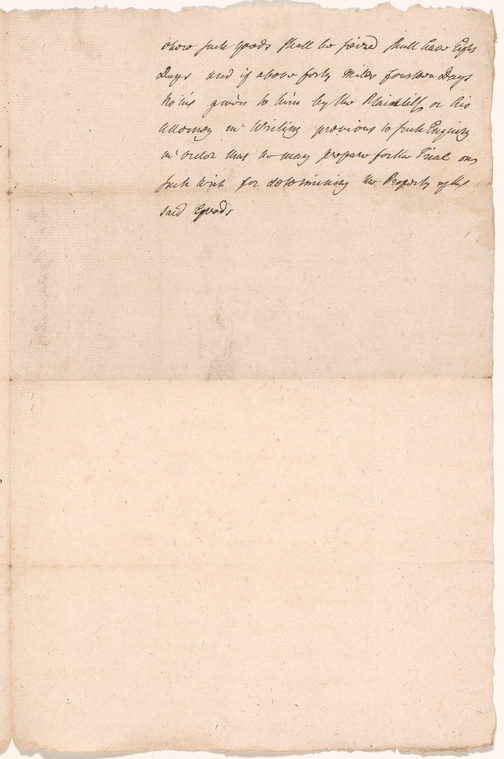 where such Goods shall be seized shall have Eight
Days and if above forty Miles fourteen Days
Notice given to him by the Plaintiff or his
Attorney in Writing previous to such Enquiry
in order that he may prepare for the Trial on
such Writ for determining the Property of the
said Goods